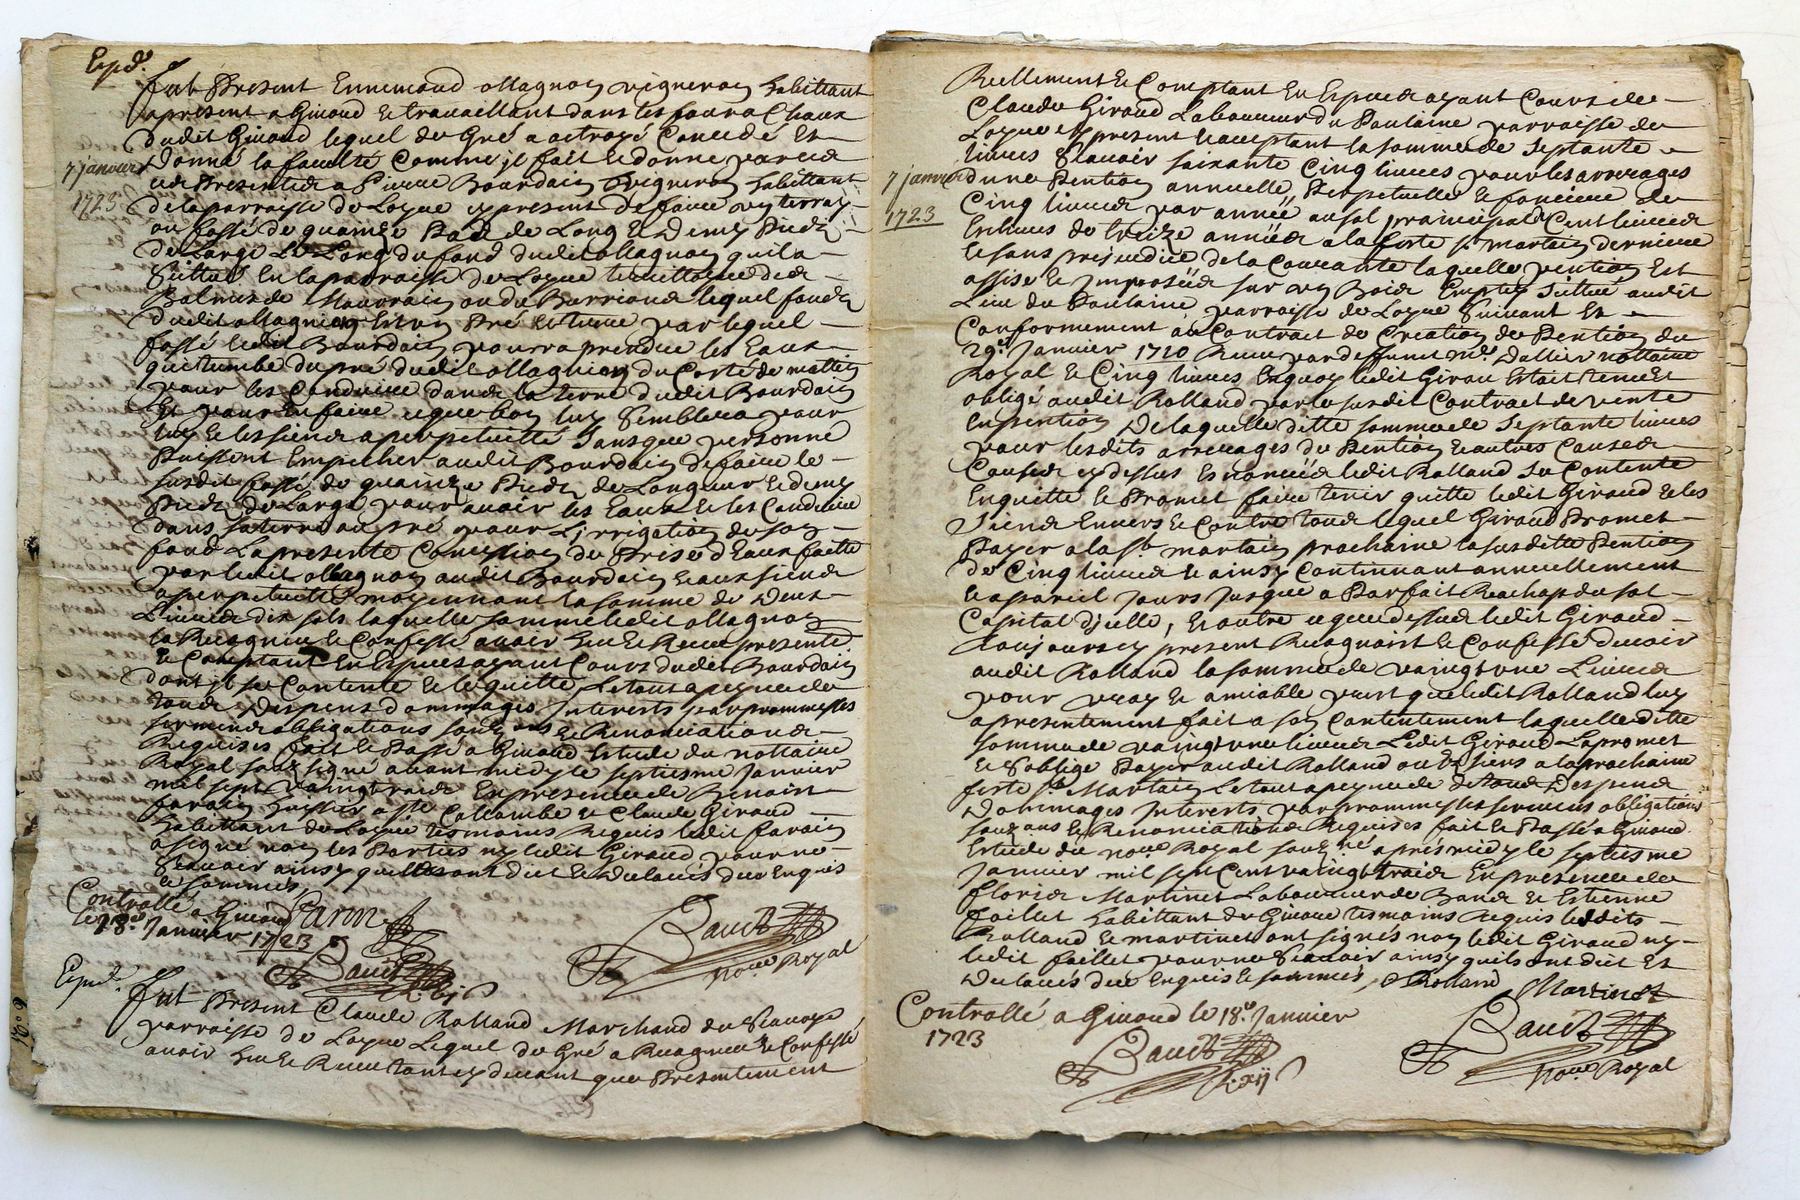 Expd.
fut Present Ennemond Magnon vigneron habittant
apresent a Givord & travaillant dans les fours a Chaux
dudit Givord lequel de Gré a octroyé Concedé Et
7 janvier
1723
donné la faculté Comme jl fait & donne par ces
presentes a Pierre Bourdain vigneron habittant
de la parroisse de Loyre cy present de faire un terray
ou fossé de quainze Pieds de Long & Demy Pied
de Large Le Long du fond dudit Magnon quil a
Scittué En la parroisse de Loyre territtoire des
Balmes de ou du lequel fonds
dudit Magnion Est un Pré & terre par lequel
fossé ledit Bourdain pourra prendre les Eaux
qui tumbe du pré dudit Magnion du Costé de mattin
pour les Conduire dans la terre dudit Bourdain
Et pour En faire ce que bon luy Semblera pour
luy & les siens a perpetuitté Sans que personne
Puissent Empecher audit Bourdain de faire le
susdit fossé de quainze Pieds de Longueur & demy
Pieds de Large pour avoir les Eaux & les Conduire
dans sa terre ou pré pour L'jrrigation de son
fond La presente Conession de Prise d'Eaux faitte
par ledit Magnon audit Bourdain & aux siens
a perpetuitté moyennant la somme de Deux
Livres dix sols laquelle somme ledit Magnon
a Recogneu & Confessé avoir heu & Receu presente
& Comptant En Especes ayant Cours dudit Bourdain
dont jl se Contente & le quitte, Le tout a peyne de
tous Despens dommages Interests par promesses
serments obligations Renonciations
Requises fait & Passé a Givord Estude du nottaire
Royal souz signé avant midy le septiesme Janvier
mil sept vaingt trois En presence de Benoist
farain huissier a Ste Collombe & Claude Giroud
habittant de Loyre tesmoins Requis ledit farain
a signé non les Parties ny ledit Giroud pour ne
Scavoir ainsy quilz ont dict & Declaré de ce Enquis
& sommés,
Controllé a Givord
le 18e. Janvier 1723
Farin
Baudt
Baudt
Noere Royal
Expd.
fut Present Claude Rolland Marchand du
parroisse de Loyre Lequel de Gré a Recogneu & Confessé
avoir heu & Receu tant cy devant que Presentement
Reellement & Comptant En Especes ayant Cours de
Claude Giroud Laboureur du Poulaine parroisse de
Loyre cy present & acceptant la somme de Septante
7 janvier
1723
livres Scavoir soixante Cinq livres pour les arrerages
dune Pention annuelle Perpetuelle & fonciere de
Cinq livres par année au sol principal de Cent livres
Escheus de treize années a la feste St martin derniere
& sans prejudice de la Courante laquelle pention Est
assise & Jmposée sur un Bois Scittué audit
Lieu du Poulaine parroisse de Loyre Suivant Et
Conformement au Contract de Creation de Pention du
29e. Janvier 1710 Receu par deffunt Me. Dallier nottaire
Royal & Cinq livres Enquoy ledit Girou Estait tenu &
obligé audit Rolland par le susdit Contract de vente
En pention De laquelle ditte somme de Septante livres
pour lesdits arrerages de Pention & autres Causes
cy dessus Enoncées ledit Rolland Se Contente
En quitte & Promet faire tenir quitte ledit Giroud & les
Siens Envers & Contre tous lequel Giroud Promet
Payer a la St martain prochaine la susditte Pention
de Cinq livres & ainsy Continuant annuellement
& a pareil jours jusque a Parfait Reachapt du sol
Capital d'jcelle, & outre ce que dessus ledit Giroud
toujours cy present Recognoist & Confesse devoir
audit Rolland la somme de vaingt une Livres
pour vray & amiable prest que ledit Rolland luy
a presentement fait a son Contentement laquelle ditte
somme de vaingt une livres Ledit Giroud La promet
& S'oblige Payer audit Rolland ou Es siens a la prochaine
feste St. Martain Le tout a peyne de tous Despens
Dommages Interests par promesses serments obligations
& Renonciations Requises fait & Passé a Givord
Estude du noere Royal souz né aprés midy le septiesme
Janvier mil sept Cent vaingt trois En presence de
floris Martinet Laboureur de Bans & Estienne
faillet habittant de Givord tesmoins Requis lesdits
Rolland & martinet ont signés non ledit Giroud ny
ledit faillet pour ne Scavoir ainsy quils ont dict Et
Declarés de ce Enquis & sommés,
Rolland
Martinet
Controllé a Givord le 18e. Janvier
1723
Baudt
Baudt
Noere Royal